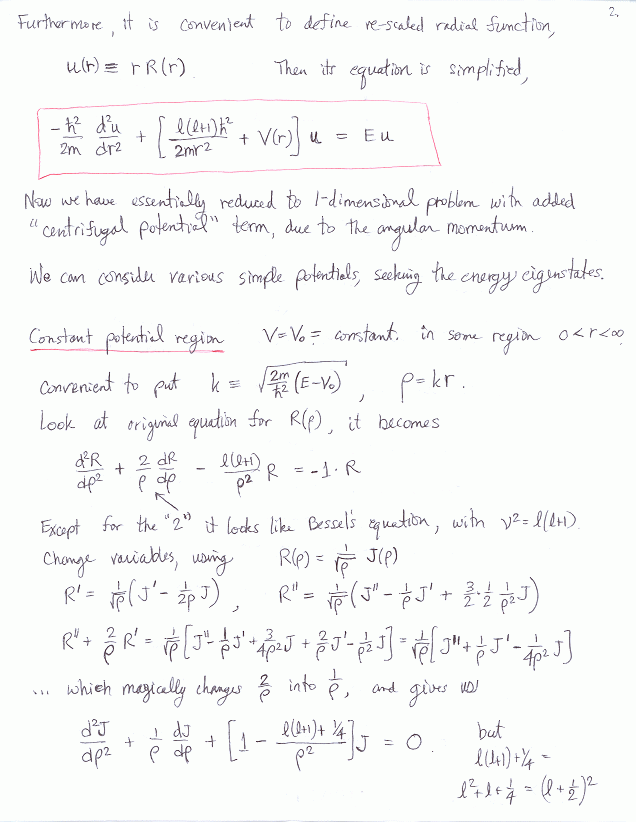 2.
Furthermore, it is convenient to define re-scaled radial function,
u(r) ≡ r R(r). Then its equation is simplified,
-ħ²/2m d²u/dr² + [ l(l+1)ħ²/2mr² + V(r) ] u = E u
Now we have essentially reduced to 1-dimensional problem with added
"centrifugal potential" term, due to the angular momentum.
We can consider various simple potentials, seeking the energy eigenstates.
Constant potential region V = V₀ = constant. in some region 0<r<∞
Convenient to put k ≡ √(2m/ħ² (E-V₀)), ρ = kr.
Look at original equation for R(ρ), it becomes
d²R/dρ² + 2/ρ dR/dρ - l(l+1)/ρ² R = -1·R
Except for the "2" it looks like Bessel's equation, with ν² = l(l+1)
Change variables, using R(ρ) = 1/√ρ J(ρ)
R' = 1/√ρ (J' - 1/2ρ J), R'' = 1/√ρ (J'' - 1/ρ J' + 3/2·1/2 1/ρ² J)
R'' + 2/ρ R' = 1/√ρ [J'' - 1/ρ J' + 3/4ρ² J + 2/ρ J' - 1/ρ² J] = 1/√ρ [J'' + 1/ρ J' - 1/4ρ² J]
... which magically changes 2/ρ into 1/ρ, and gives us
d²J/dρ² + 1/ρ dJ/dρ + [1 - l(l+1)+¼/ρ²] J = 0.
but
l(l+1)+¼ =
l²+l+¼ = (l+½)²